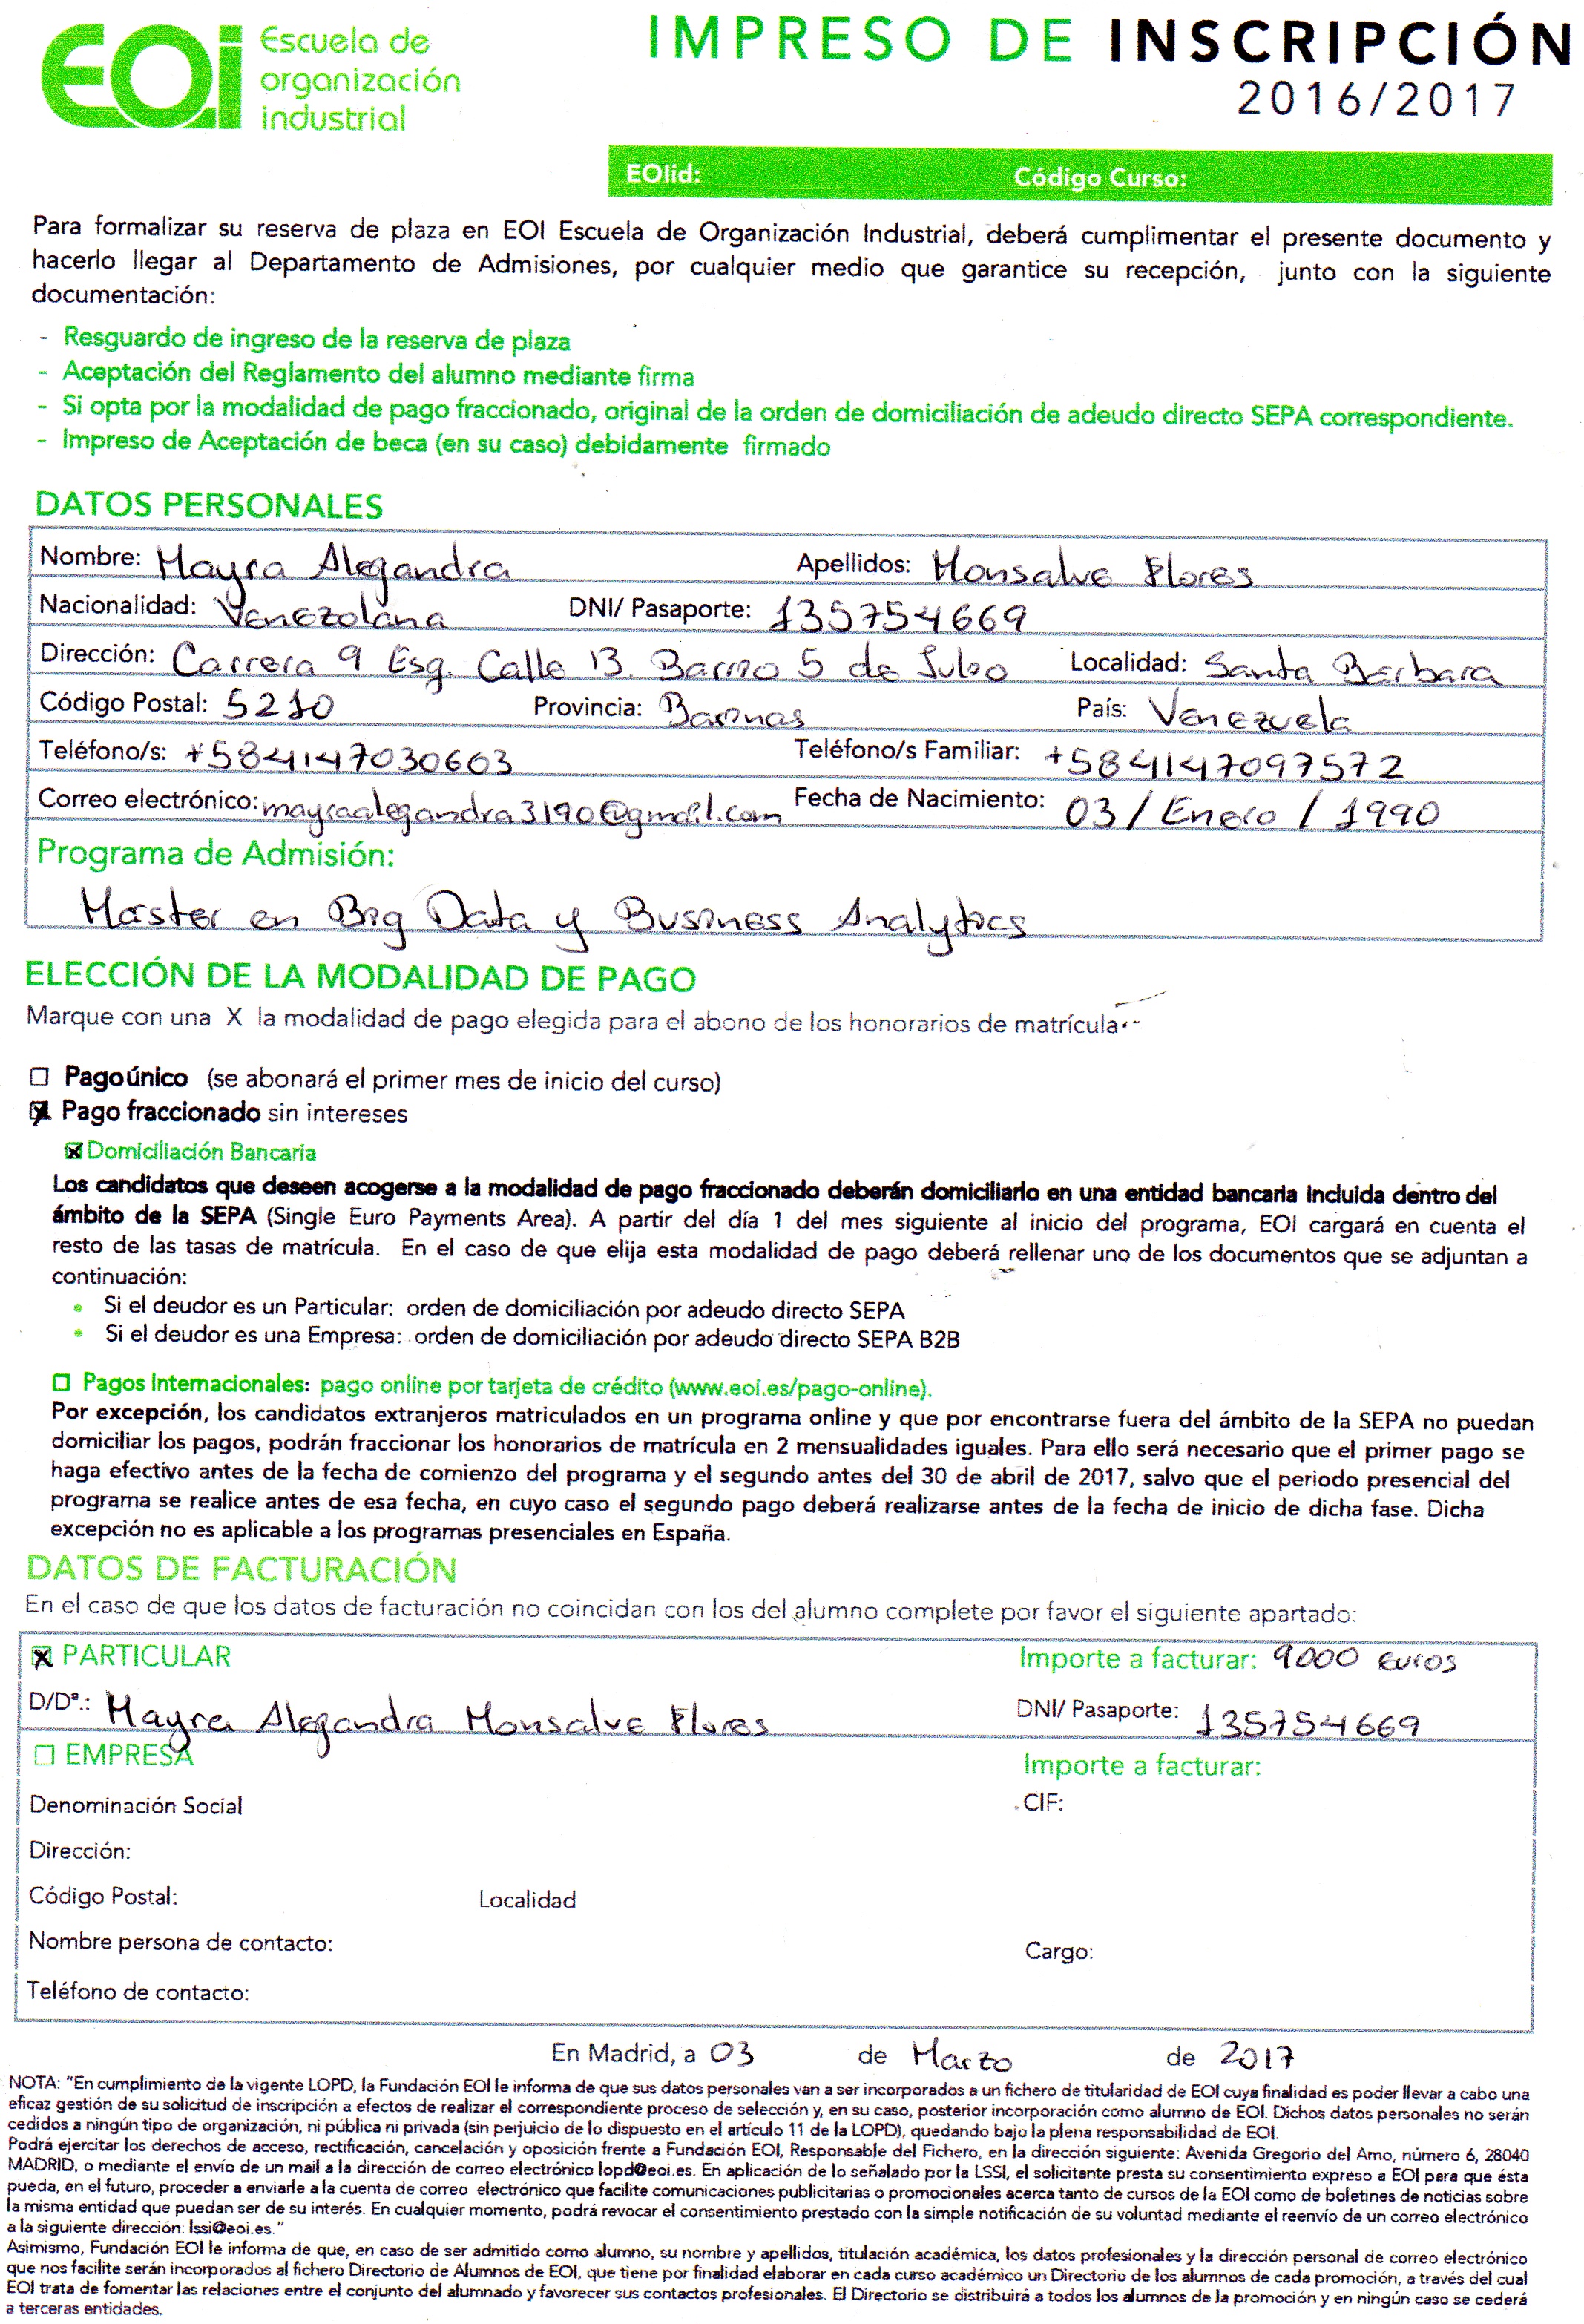 EOI Escuela de
organización
industrial
IMPRESO DE INSCRIPCIÓN
2016/2017
EOIid: Código Curso:
Para formalizar su reserva de plaza en EOI Escuela de Organización Industrial, deberá cumplimentar el presente documento y
hacerlo llegar al Departamento de Admisiones, por cualquier medio que garantice su recepción, junto con la siguiente
documentación:
- Resguardo de ingreso de la reserva de plaza
- Aceptación del Reglamento del alumno mediante firma
- Si opta por la modalidad de pago fraccionado, original de la orden de domiciliación de adeudo directo SEPA correspondiente.
- Impreso de Aceptación de beca (en su caso) debidamente firmado
DATOS PERSONALES
Nombre: Mayra Alejandra Apellidos: Monsalve Flores
Nacionalidad: Venezolana DNI/ Pasaporte: 135754669
Dirección: Carrera 9 Esq. Calle 13. Barrio 5 de Julio Localidad: Santa Bárbara
Código Postal: 5210 Provincia: Barinas País: Venezuela
Teléfono/s: +584147030603 Teléfono/s Familiar: +584147097572
Correo electrónico: mayraalejandra3190@gmail.com Fecha de Nacimiento: 03 / Enero / 1990
Programa de Admisión:
Master en Big Data y Business Analytics
ELECCIÓN DE LA MODALIDAD DE PAGO
Marque con una X la modalidad de pago elegida para el abono de los honorarios de matrícula
☐ Pago único (se abonará el primer mes de inicio del curso)
☒ Pago fraccionado sin intereses
☒ Domiciliación Bancaria
Los candidatos que deseen acogerse a la modalidad de pago fraccionado deberán domiciliarlo en una entidad bancaria incluida dentro del
ámbito de la SEPA (Single Euro Payments Area). A partir del día 1 del mes siguiente al inicio del programa, EOI cargará en cuenta el
resto de las tasas de matrícula. En el caso de que elija esta modalidad de pago deberá rellenar uno de los documentos que se adjuntan a
continuación:
• Si el deudor es un Particular: orden de domiciliación por adeudo directo SEPA
• Si el deudor es una Empresa: orden de domiciliación por adeudo directo SEPA B2B
☐ Pagos Internacionales: pago online por tarjeta de crédito (www.eoi.es/pago-online).
Por excepción, los candidatos extranjeros matriculados en un programa online y que por encontrarse fuera del ámbito de la SEPA no puedan
domiciliar los pagos, podrán fraccionar los honorarios de matrícula en 2 mensualidades iguales. Para ello será necesario que el primer pago se
haga efectivo antes de la fecha de comienzo del programa y el segundo antes del 30 de abril de 2017, salvo que el periodo presencial del
programa se realice antes de esa fecha, en cuyo caso el segundo pago deberá realizarse antes de la fecha de inicio de dicha fase. Dicha
excepción no es aplicable a los programas presenciales en España.
DATOS DE FACTURACIÓN
En el caso de que los datos de facturación no coincidan con los del alumno complete por favor el siguiente apartado:
☒ PARTICULAR Importe a facturar: 9000 Euros
D/Dª.: Mayra Alejandra Monsalve Flores DNI/ Pasaporte: 135754669
☐ EMPRESA Importe a facturar:
Denominación Social CIF:
Dirección:
Código Postal: Localidad
Nombre persona de contacto: Cargo:
Teléfono de contacto:
En Madrid, a 03 de Marzo de 2017
NOTA: "En cumplimiento de la vigente LOPD, la Fundación EOI le informa de que sus datos personales van a ser incorporados a un fichero de titularidad de EOI cuya finalidad es poder llevar a cabo una
eficaz gestión de su solicitud de inscripción a efectos de realizar el correspondiente proceso de selección y, en su caso, posterior incorporación como alumno de EOI. Dichos datos personales no serán
cedidos a ningún tipo de organización, ni pública ni privada (sin perjuicio de lo dispuesto en el artículo 11 de la LOPD), quedando bajo la plena responsabilidad de EOI.
Podrá ejercitar los derechos de acceso, rectificación, cancelación y oposición frente a Fundación EOI, Responsable del Fichero, en la dirección siguiente: Avenida Gregorio del Amo, número 6, 28040
MADRID, o mediante el envío de un mail a la dirección de correo electrónico lopd@eoi.es. En aplicación de lo señalado por la LSSI, el solicitante presta su consentimiento expreso a EOI para que ésta
pueda, en el futuro, proceder a enviarle a la cuenta de correo electrónico que facilite comunicaciones publicitarias o promocionales acerca tanto de cursos de la EOI como de boletines de noticias sobre
la misma entidad que puedan ser de su interés. En cualquier momento, podrá revocar el consentimiento prestado con la simple notificación de su voluntad mediante el reenvío de un correo electrónico
a la siguiente dirección: lssi@eoi.es."
Asimismo, Fundación EOI le informa de que, en caso de ser admitido como alumno, su nombre y apellidos, titulación académica, los datos profesionales y la dirección personal de correo electrónico
que nos facilite serán incorporados al fichero Directorio de Alumnos de EOI, que tiene por finalidad elaborar en cada curso académico un Directorio de los alumnos de cada promoción, a través del cual
EOI trata de fomentar las relaciones entre el conjunto del alumnado y favorecer sus contactos profesionales. El Directorio se distribuirá a todos los alumnos de la promoción y en ningún caso se cederá
a terceras entidades.